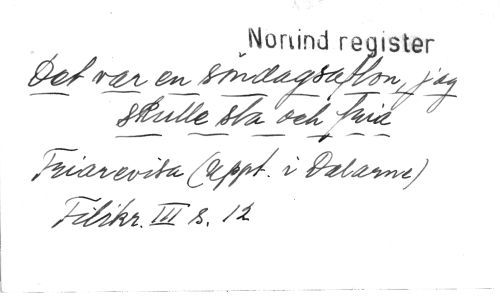 Norlind register
Det var en söndagsafton, jag
skulle stå och fria
Friarevisa (uppt. i Dalarne)
Filikr. III s. 12